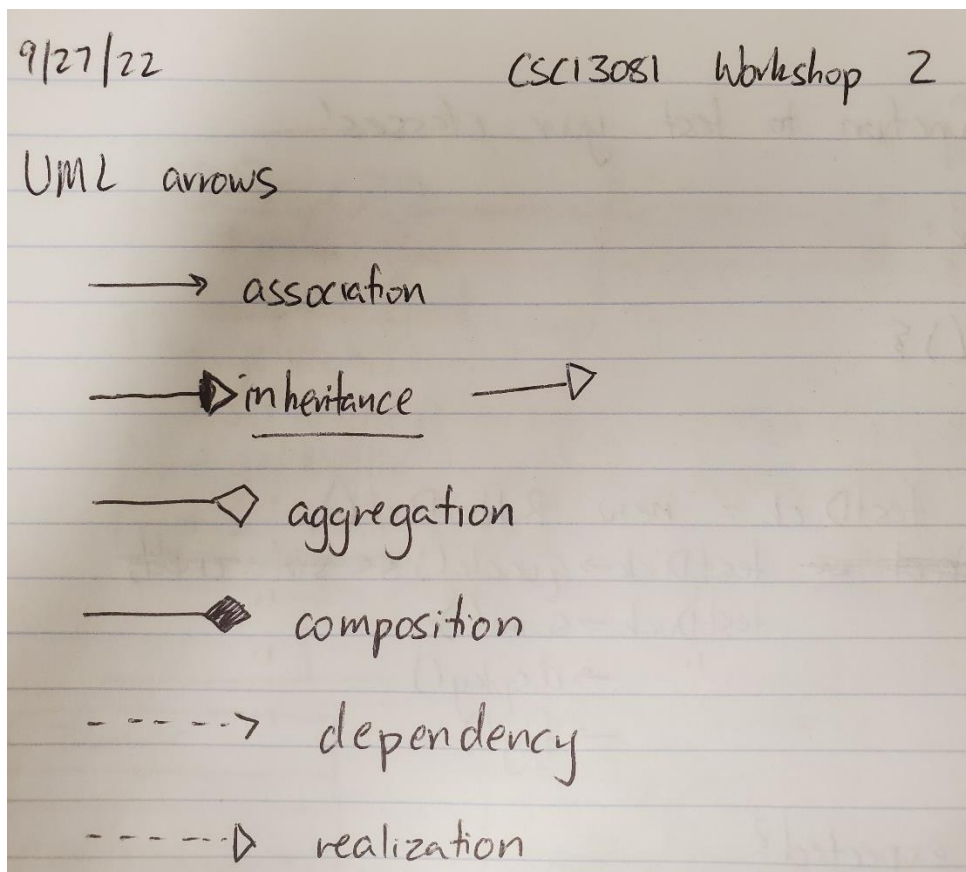 9/27/22 CSCI3081 Workshop 2
UML arrows
association
inheritance
aggregation
composition
dependency
realization